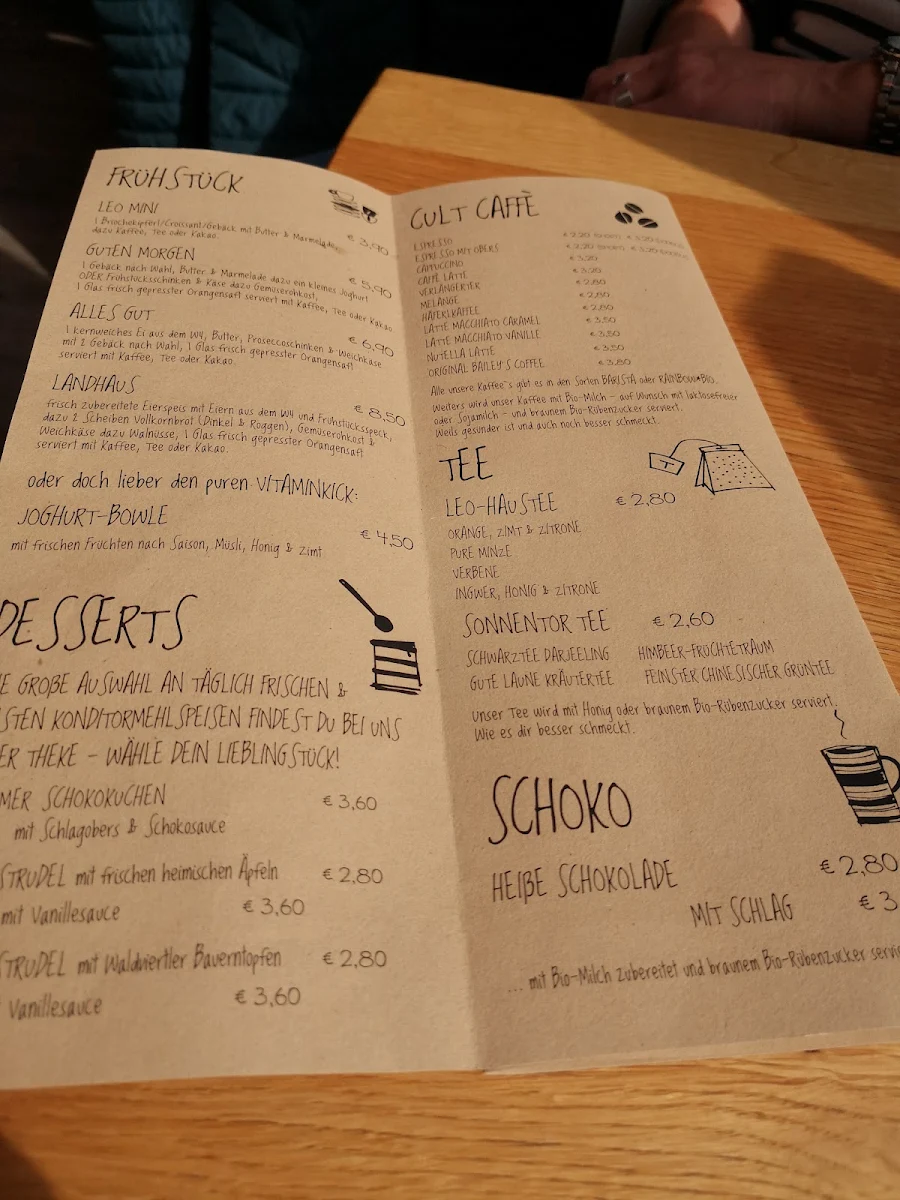 FRÜHSTÜCK
LEO MINI
1 Briochekipferl/Croissant/Gebäck mit Butter & Marmelade,
dazu Kaffee, Tee oder Kakao.
€ 3,90
GUTEN MORGEN
1 Gebäck nach Wahl, Butter & Marmelade dazu ein kleines Joghurt
ODER Frühstücksschinken & Käse dazu Gemüserohkost,
1 Glas frisch gepresster Orangensaft serviert mit Kaffee, Tee oder Kakao
€ 5,90
ALLES GUT
1 kernweiches Ei aus dem W4, Butter, Proseccoschinken & Weichkäse
mit 2 Gebäck nach Wahl, 1 Glas frisch gepresster Orangensaft
serviert mit Kaffee, Tee oder Kakao.
€ 6,90
LANDHAUS
frisch zubereitete Eierspeis mit Eiern aus dem W4 und Frühstücksspeck,
dazu 2 Scheiben Vollkornbrot (Dinkel & Roggen), Gemüserohkost &
Weichkäse dazu Walnüsse, 1 Glas frisch gepresster Orangensaft
serviert mit Kaffee, Tee oder Kakao.
€ 8,50
oder doch lieber den puren VITAMINKICK:
JOGHURT-BOWLE
mit frischen Früchten nach Saison, Müsli, Honig & Zimt
€ 4,50
DESSERTS
E GROßE AUSWAHL AN TÄGLICH FRISCHEN &
STEN KONDITORMEHLSPEISEN FINDEST DU BEI UNS
ER THEKE – WÄHLE DEIN LIEBLINGSTÜCK!
MER SCHOKOKUCHEN € 3,60
mit Schlagobers & Schokosauce
STRUDEL mit frischen heimischen Äpfeln € 2,80
mit Vanillesauce € 3,60
STRUDEL mit Waldviertler Bauerntopfen € 2,80
Vanillesauce € 3,60
CULT CAFFÈ
ESPRESSO € 2,20 € 3,20
ESPRESSO MIT OBERS € 2,20 € 3,20
CAPPUCCINO € 3,20
CAFFÈ LATTE € 3,20
VERLÄNGERTER € 2,80
MELANGE € 2,80
HÄFERLKAFFEE € 2,80
LATTE MACCHIATO CARAMEL € 3,50
LATTE MACCHIATO VANILLE € 3,50
NUTELLA LATTE € 3,50
ORIGINAL BAILEY'S COFFEE € 3,80
Alle unsere Kaffee's gibt es in den Sorten BARISTA oder RAINBOW•BIO.
Weiters wird unser Kaffee mit Bio-Milch – auf Wunsch mit laktosefreier
oder Sojamilch – und braunem Bio-Rübenzucker serviert.
Weils gesünder ist und auch noch besser schmeckt.
TEE
T
LEO-HAUSTEE € 2,80
ORANGE, ZIMT & ZITRONE
PURE MINZE
VERBENE
INGWER, HONIG & ZITRONE
SONNENTOR TEE € 2,60
SCHWARZTEE DARJEELING HIMBEER-FRÜCHTETRAUM
GUTE LAUNE KRÄUTERTEE FEINSTER CHINESISCHER GRÜNTEE
Unser Tee wird mit Honig oder braunem Bio-Rübenzucker serviert.
Wie es dir besser schmeckt.
SCHOKO
HEIßE SCHOKOLADE € 2,80
MIT SCHLAG € 3
... mit Bio-Milch zubereitet und braunem Bio-Rübenzucker servi